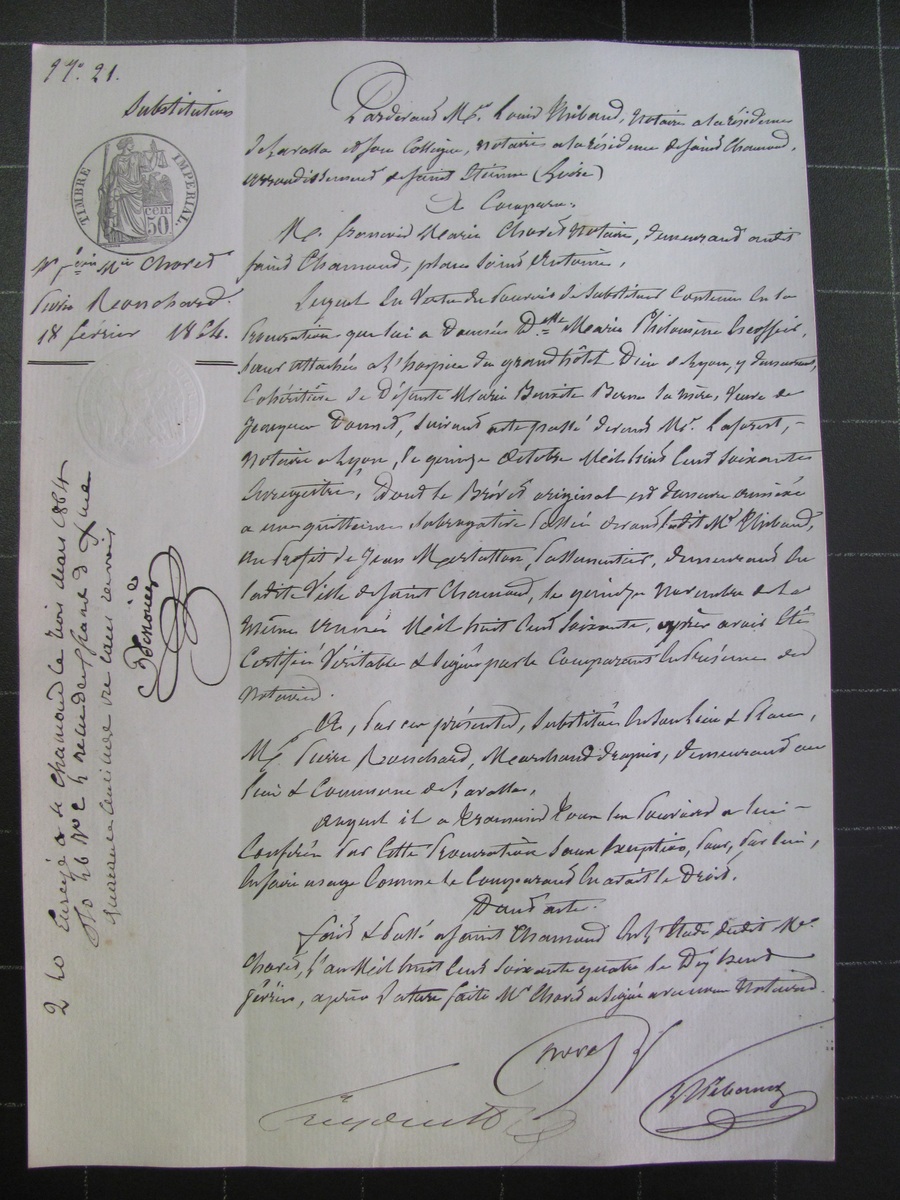 N°. 21.
Substitution
TIMBRE IMPERIAL
50 cen
Mr fçois Mie Chorel
Pierre Ronchard.
18 février 1864.
2 40 Enregé a St Chamond le trois mars 1864
fo 76 Vo C reçu deux francs &
quarante centimes
Pardevant Mtre Louis, Notaire a la résidence
de & son Collègue, notaires a la résidence de saint Chamond,
arrondissement de saint Etienne (Loire)
A Comparu:
Mr. francois Marie Chorel Notaire, demeurant audit
saint Chamond, place saint Antoine,
Lequel En Vertu du Pouvoir de Substituer Contenu En la
Procuration que lui a Donnée Delle Marie Philomène
sœur attachée a l'hospice du grand hôtel Dieu de Lyon, y demeurant,
Cohéritière de Défunte Marie Benoite sa mère, Veuve de
Jacques, suivant acte passé devant Mr. Laforest, -
Notaire a Lyon, le quinze Octobre Mil huit Cent soixante
Enregistré, dont le Brévet original est demeuré annéxé
a une quittance subrogative Passée devant ledit Mr
au Profit de Jean, Passementier, demeurant En
ladite Ville de saint Chamond, le quinze novembre de la
même année Mil huit Cent soixante, après avoir Eté
Certifié Véritable & signé par le Comparant En présence des
Notaires.
A, Par ces présentes, substitué En son lieu & Place,
Mr Pierre Ronchard, Marchand drapier, demeurant au
lieu & Commune de
auquel il a transmis Tous les Pouvoirs a lui -
Conférés Par Cette Procuration sans Exception, Pour, Par lui,
En faire usage Comme le Comparant En avait le Droit.
Dont acte.
fait & Passé a saint Chamond En l'Etude dudit Mr
Chorel, l'an Mil huit Cent soixante quatre le Dix huit
février, après lecture faite Mr Chorel a signé avec nous Notaires.
Chorel